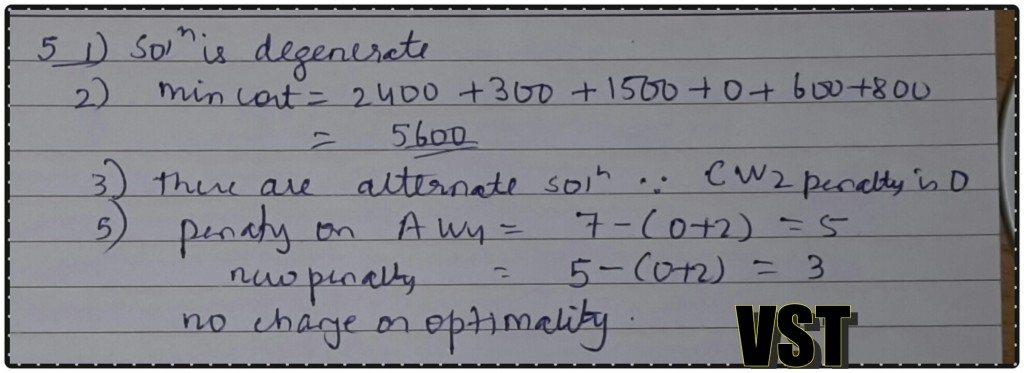 5 1) Solⁿ is degenerate
2) min cost = 2400 + 300 + 1500 + 0 + 600 + 800
= 5600
3) there are alternate solⁿ ∵ CW2 penalty is 0
5) penalty on AW4 = 7 - (0+2) = 5
new penalty = 5 - (0+2) = 3
no change on optimality.
VST